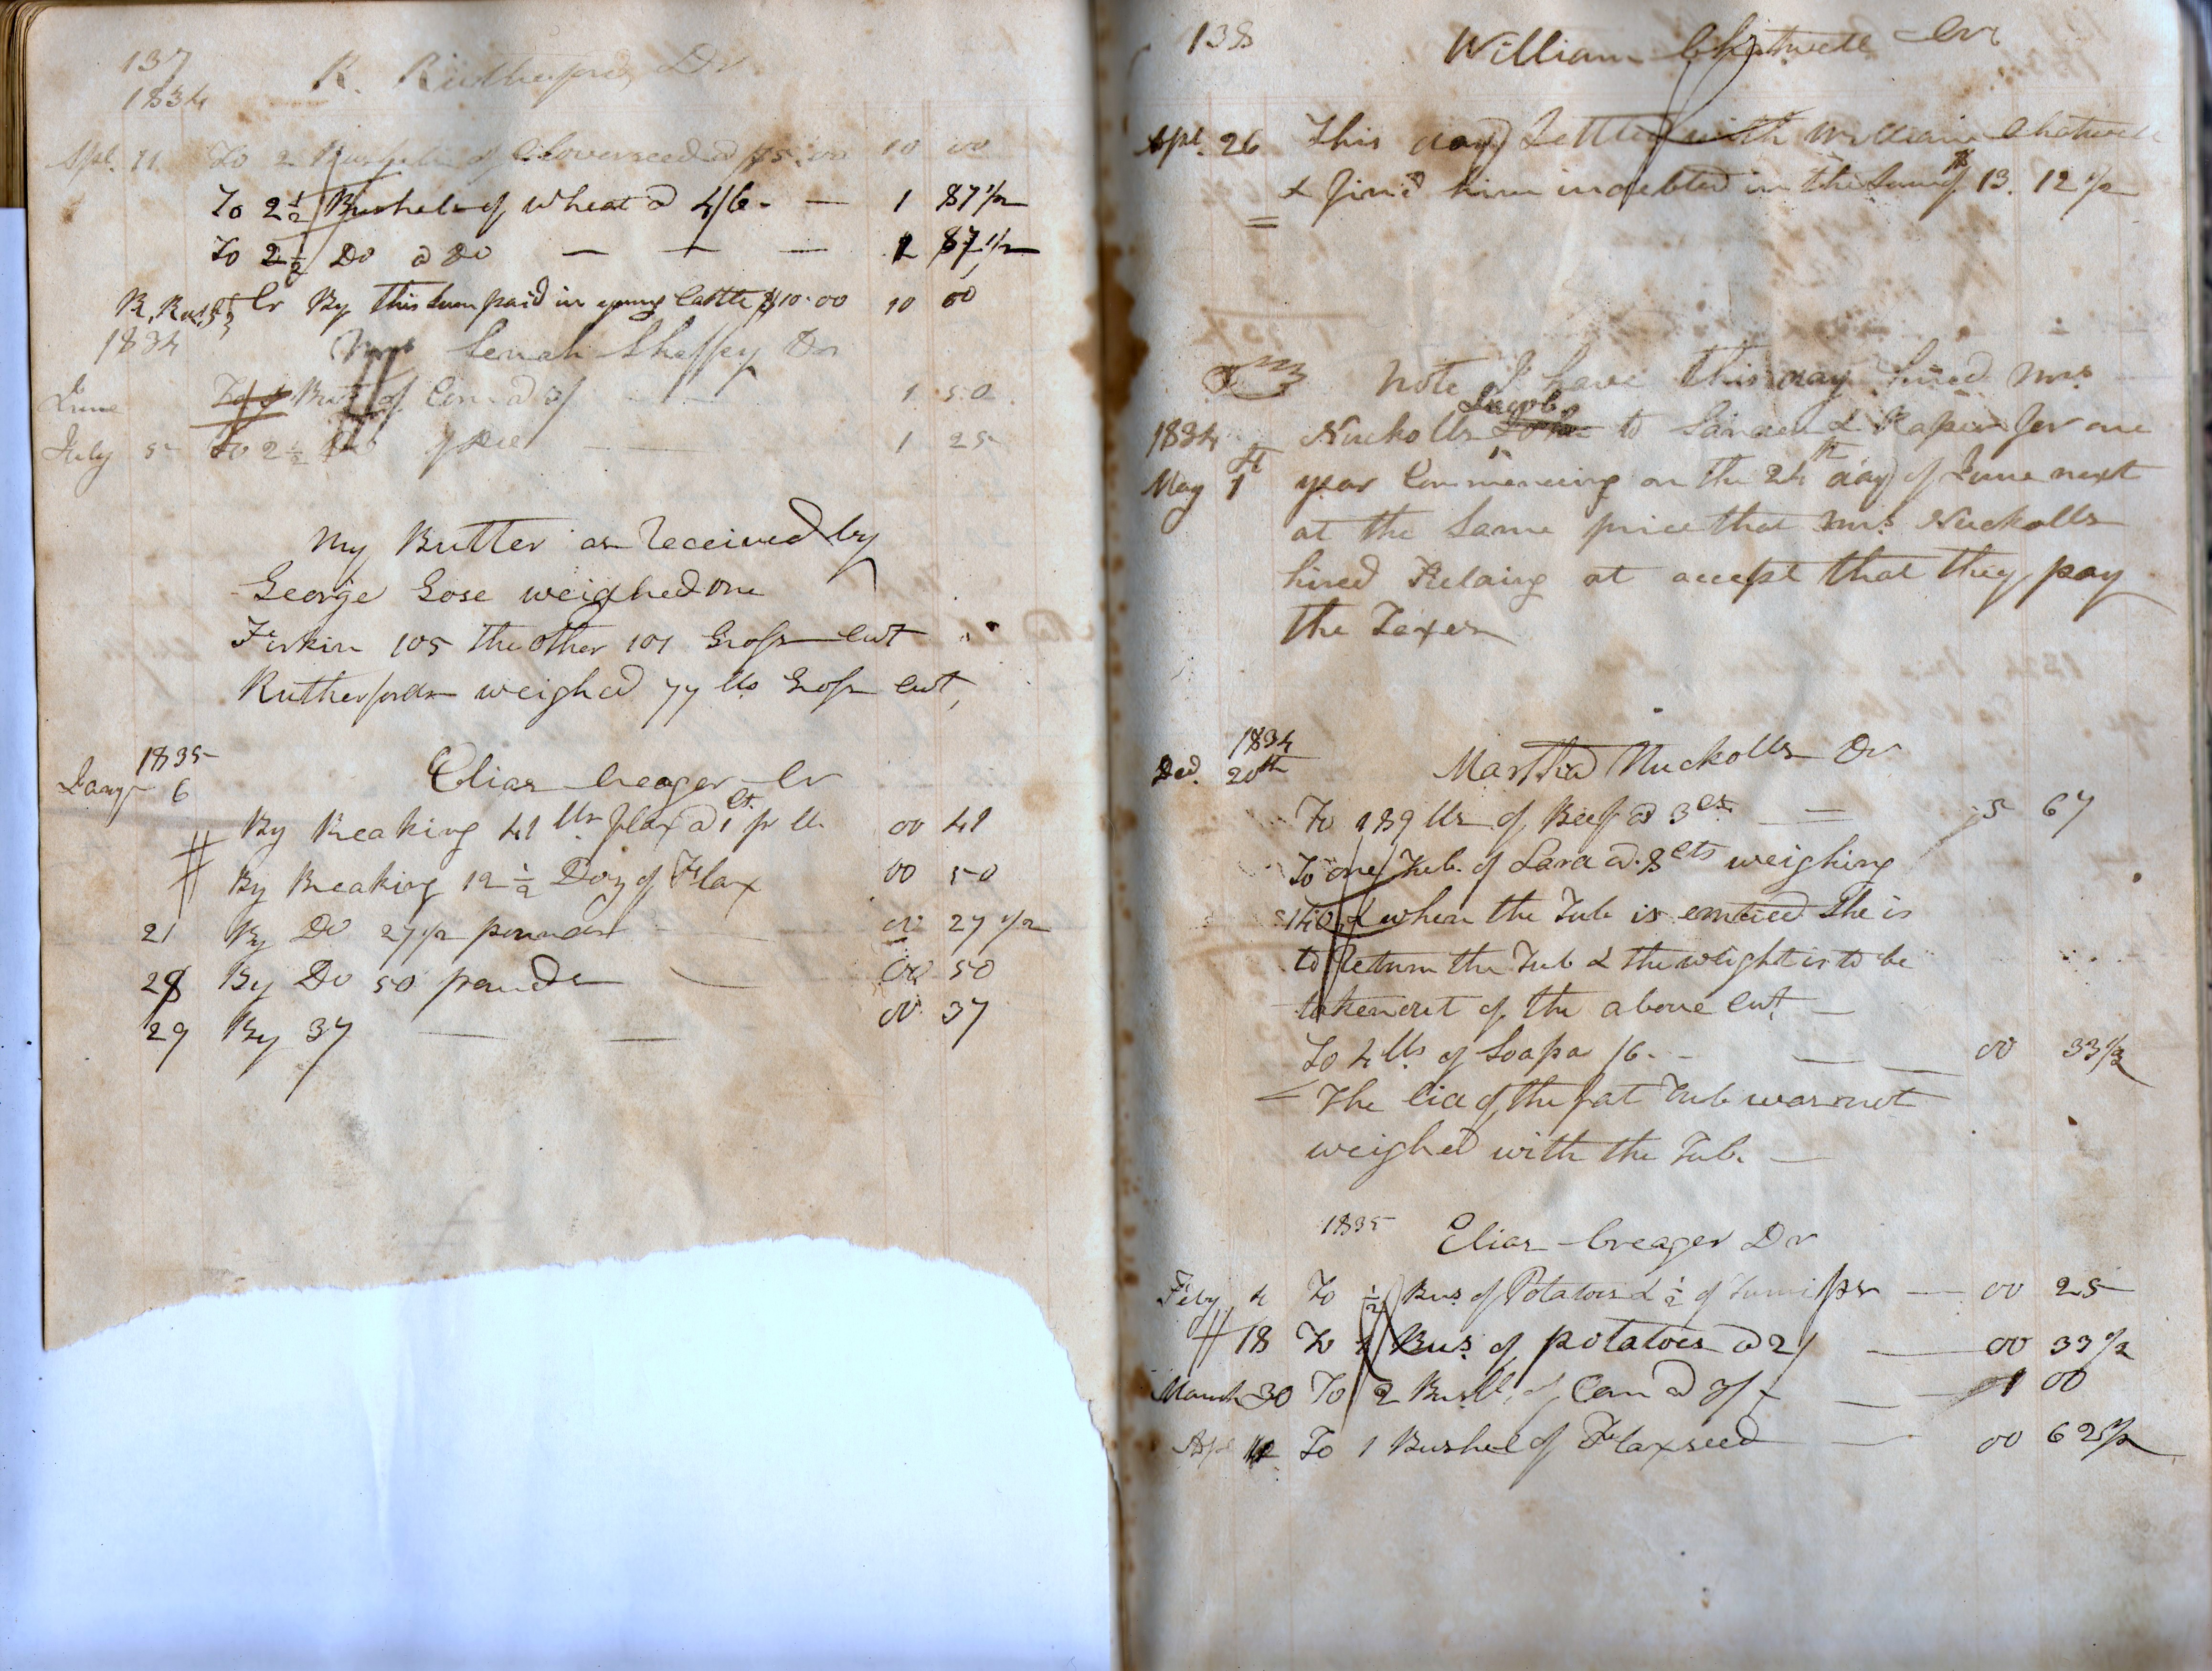 137
1834
R. Rutherford Dr
Apl. 11 To 2 Bushels of Cloverseed @ $5.00 10 00
To 2 1/2 Bushels of Wheat @ 4/6 - — 1 87 1/2
To 2 1/2 Do @ Do — — — 1 87 1/2
Cr By this sum paid in young Cattle $10.00 10 00
1834
Mrs Shaffey Dr
June Bus of Corn @ 3/ 1 50
July 5 To 2 1/2 Do 1 25
My Butter as Received by
George Gose weighed one
Firkin 105 the other 101 Gross Cwt
Rutherfords weighed 77 lbs Gross Cwt,
1835
Jany 6 Elias Creager Cr
By Breaking 41 lbs flax @ 1 ct pr lb 00 41
By Breaking 12 1/2 Doz of Flax 00 50
21 By Do 27 1/2 pounds 00 27 1/2
28 By Do 50 pounds — 00 50
29 By 37 — — 00 37
138
William Chatwell Cr
Apl. 26 This day Settled with William Chatwell
& find him indebted in the sum of $13. 12 1/2
Note I have this day hired Mrs
Jacob
1834 Nuckolls to & for one
May 1st year Commencing on the 24th day of June next
at the same price that Mrs Nuckolls
hired at accept that they pay
the Taxes
1834
Ded. 20th Martha Nuckolls Dr
To 189 lbs of Beef @ 3 cts — 5 67
To one Tub. of Lard @ 8 cts weighing
140 & when the Tub is emtied She is
to Return the Tub & the weight is to be
taken out of the above Cwt —
To 4 lbs of Soap @ /6 - — 00 33 1/3
The lid of the fat Tub was not
weighed with the Tub. —
1835 Elias Creager Dr
Feby 4 To 1/2 Bus of Potatoes & 1/2 of turnips — 00 25
18 To 1 Bus. of potatoes @ 2/ — 00 33 1/2
March 30 To 2 Bush. of Corn @ 3/ — 1 00
Apl To 1 Bushel of Flaxseed — 00 62 1/2